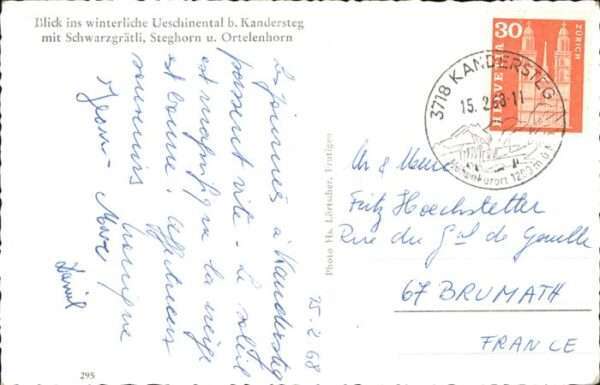 Blick ins winterliche Ueschinental b. Kandersteg
mit Schwarzgrätli, Steghorn u. Ortelenhorn
Les journées à Kandersteg
passent vite - Le soleil
est magnifique la neige
est bonne. Affectueux
souvenirs
Monique
Jean-Marc
Daniel
15.2.68
295
Photo Hs. Lörtscher, Frutigen
HELVETIA
30
ZÜRICH
3718 KANDERSTEG
15.2.68-11
Höhenkurort 1200 m ü.M.
Mr & Mme
Fritz Hoechstetter
Rue du Gal de Gaulle
67 BRUMATH
FRANCE